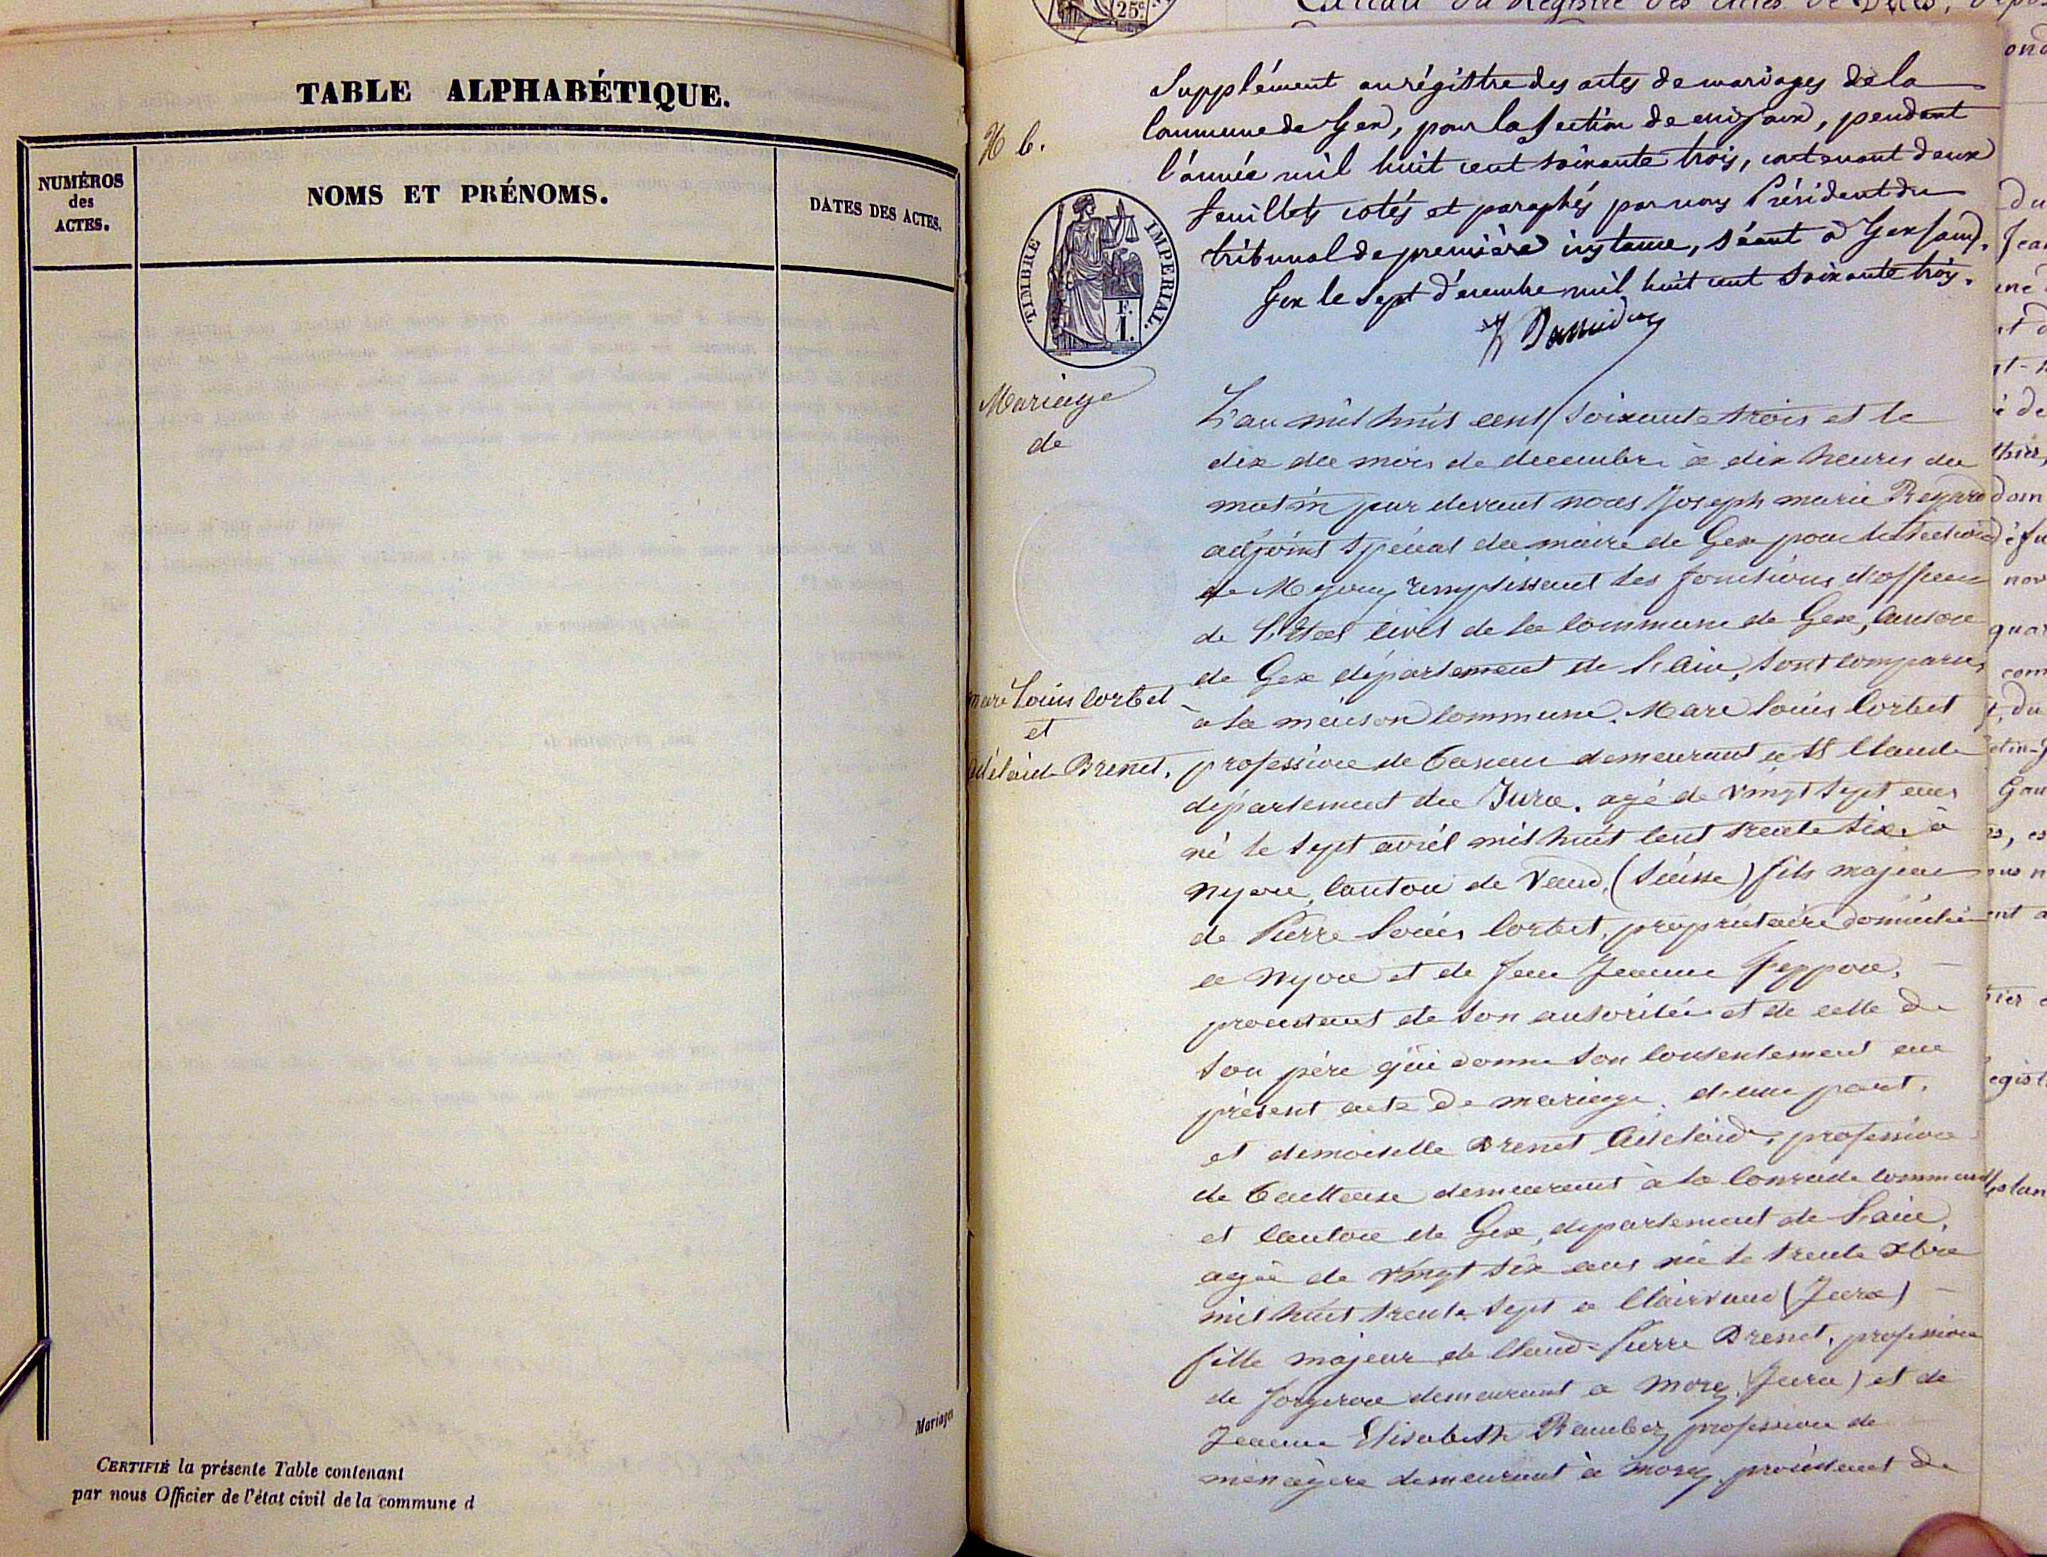 TABLE ALPHABÉTIQUE.
NUMÉROS
des
ACTES.
NOMS ET PRÉNOMS.
DATES DES ACTES.
Mariages
CERTIFIÉ la présente Table contenant
par nous Officier de l'état civil de la commune d
25c
Supplément au régistre des actes de mariages de la
Commune de Gex, pour la section de , pendant
l'année mil huit cent soixante trois, contenant deux
feuillets cotés et paraphés par nous Président du
tribunal de première instance, séant à Gex
Gex le sept décembre mil huit cent soixante trois.
TIMBRE IMPÉRIAL.
F.
1.
Mariage
de
marc Louis Corbet
et
Adélaide Brenet.
L'an mil huit cent soixante trois et le
dix du mois de decembre à dix heures du
matin par devant nous Joseph marie
adjoint spécial du maire de Gex pour la section
de remplissant les fonctions d'officier
de l'Etat civil de la Commune de Gex, canton
de Gex département de l'ain, sont comparus
à la maison Commune. Marc Louis Corbet
profession de demeurant à St Claude
département du Jura. agé de vingt sept ans
né le sept avril mil huit cent trente six à
Nyon, canton de Vaud, (Suisse) fils majeur
de Pierre Louis Corbet, propriétaire domicilié
a Nyon et de feu Jeanne
procédant de son autorité et de celle de
son père qui donne son consentement au
présent acte de mariage. d'une part.
et demoiselle Brenet Adelaide, profession
de demeurant à la commune
et canton de Gex, département de l'ain,
agée de vingt six ans née le trente Xbre
mil huit trente sept a Clairvaux (Jura)
fille majeur de Claude Pierre Brenet, profession
de forgeron demeurant a morez (Jura) et de
Jeanne Elisabeth profession de
ménagère demeurant à morez procédant de